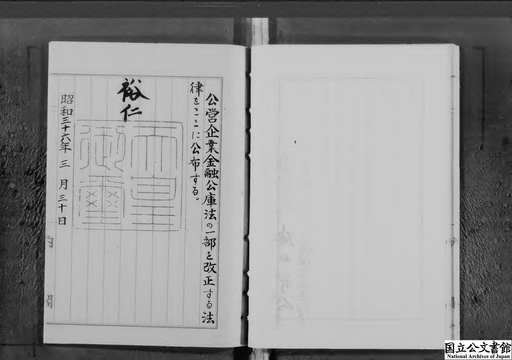 公営企業金融公庫法の一部を改正する法
律をここに公布する。
裕仁
天皇
御璽
昭和三十六年三月三十日
内閣
国立公文書館
National Archives of Japan